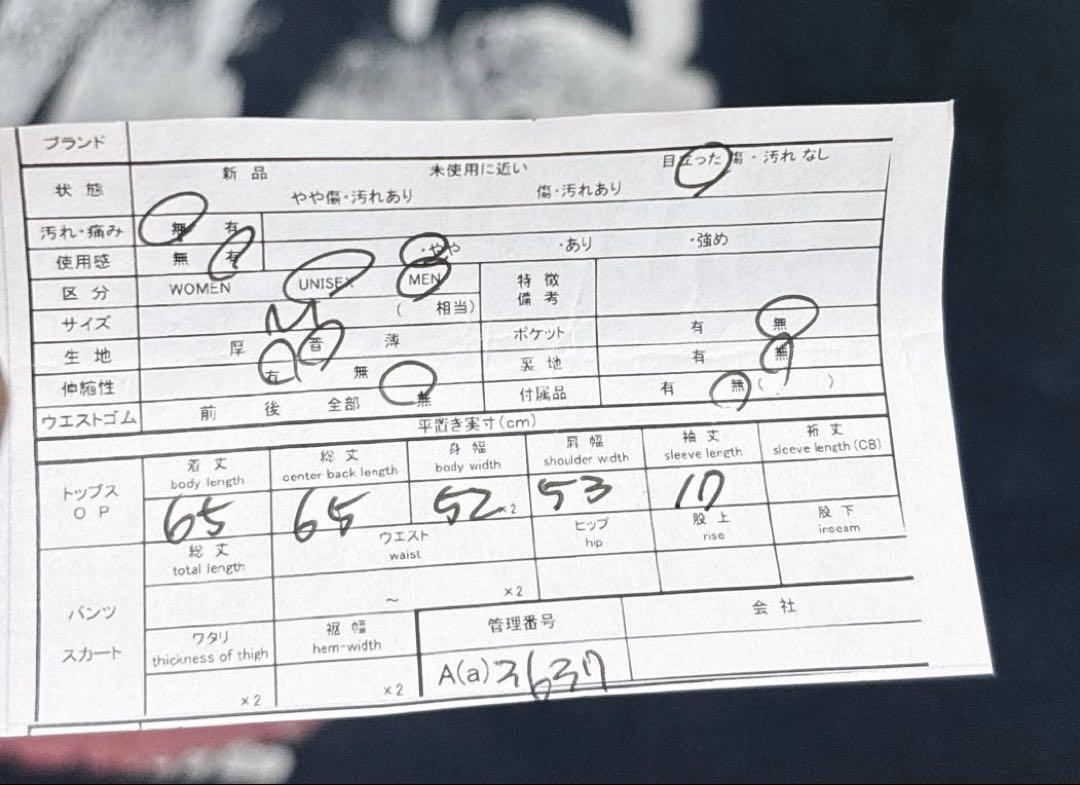 ブランド
状態 新品 未使用に近い 目立った傷・汚れなし
やや傷・汚れあり 傷・汚れあり
汚れ・痛み 無 有
使用感 無 有 ・やや ・あり ・強め
区分 WOMEN UNISEX MEN 特徴備考
サイズ M (相当)
生地 厚 普 薄 ポケット 有 無
伸縮性 有 無 裏地 有 無
ウエストゴム 前 後 全部 無 付属品 有 無( )
平置き実寸(cm)
トップス OP 着丈 総丈 身幅 肩幅 袖丈 裄丈
body length center back length body width shoulder width sleeve length sleeve length (CB)
65 65 52×2 53 17
パンツ スカート 総丈 ウエスト ヒップ 股上 股下
total length waist hip rise inseam
~ ×2
ワタリ 裾幅 管理番号 会社
thickness of thigh hem-width
×2 ×2 A(a)